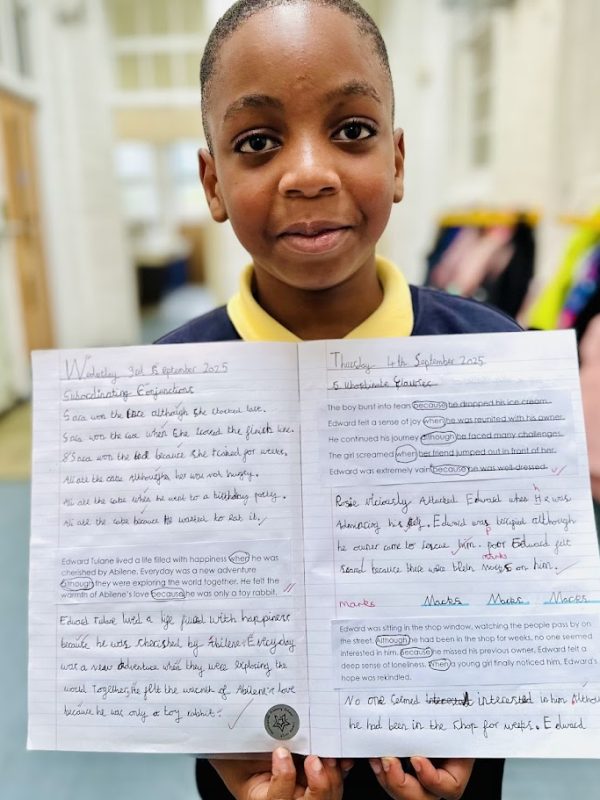 Wednesday 3rd September 2025
Subordinating Conjunctions
Sara won the race although she started late.
Sara won the race when she crossed the finish line.
Sara won the because she trained for weeks.
Ali ate the cake although he was not hungry.
Ali ate the cake when he went to a birthday party.
Ali ate the cake because he wanted to eat it.
Edward Tulane lived a life filled with happiness when he was
cherished by Abilene. Everyday was a new adventure
although they were exploring the world together. He felt the
warmth of Abilene's love because he was only a toy rabbit.
Edward Tulane lived a life with happiness
because he was cherished by Abilene. Everyday
was a new adventure when they were exploring the
world together, he felt the warmth of Abilene's love
because he was only a toy rabbit.
Thursday 4th September 2025
The boy burst into tears because he dropped his ice cream.
Edward felt a sense of joy when he was reunited with his owner.
He continued his journey although he faced many challenges.
The girl screamed when her friend jumped out in front of her.
Edward was extremely vain because he was well-dressed.
Rosie viciously attacked Edward when He was
h
admiring his. Edward was although
he owner came to rescue him. Poor Edward felt
because there were on him.
marks Marks Marks Marks
Edward was sitting in the shop window, watching the people pass by on
the street. Although he had been in the shop for weeks, no one seemed
interested in him. Because he missed his previous owner, Edward felt a
deep sense of loneliness. When a young girl finally noticed him, Edward's
hope was rekindled.
No one seemed interested in him Although
he had been in the shop for weeks. Edward